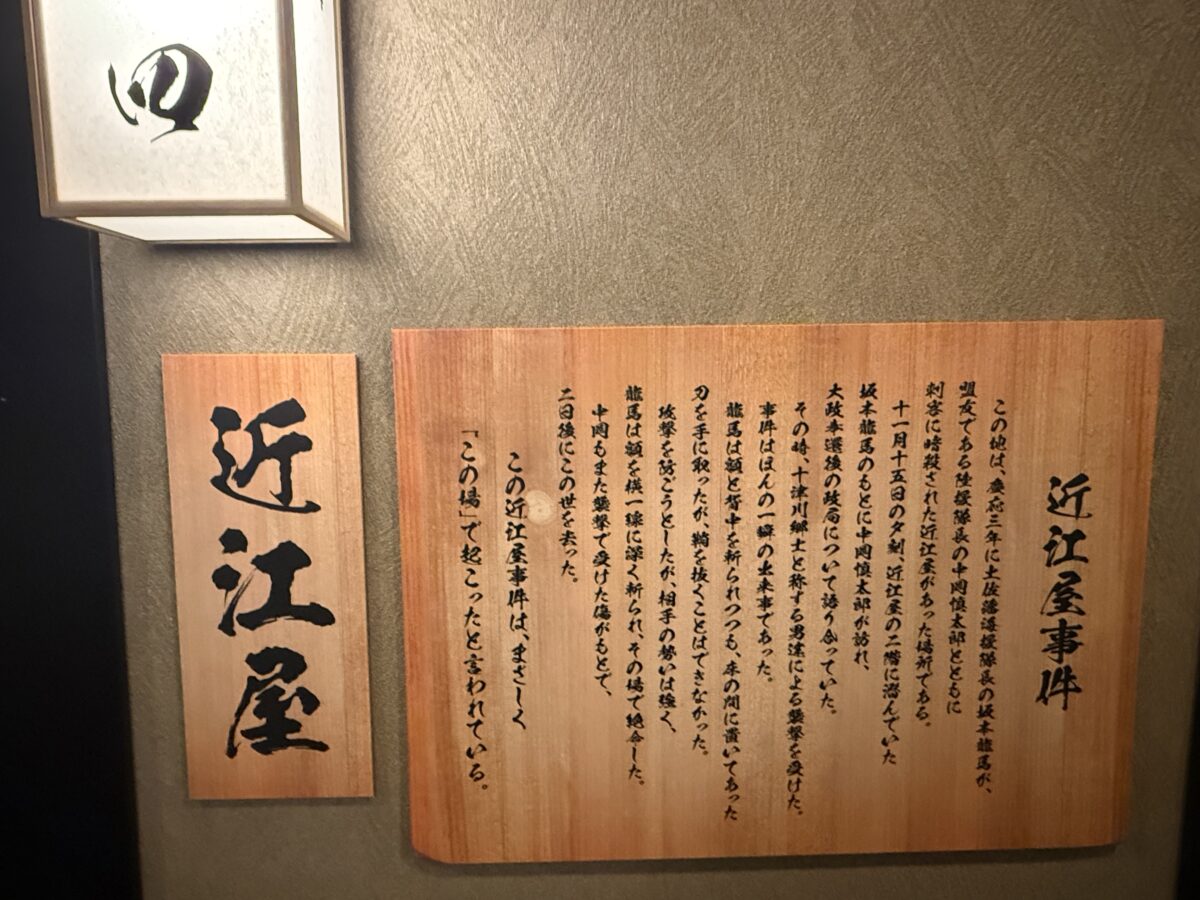 近江屋事件
この地は、慶応三年に土佐藩海援隊長の坂本龍馬が、
盟友である陸援隊長の中岡慎太郎とともに
刺客に暗殺された近江屋があった場所である。
十一月十五日の夕刻、近江屋の二階に潜んでいた
坂本龍馬のもとに中岡慎太郎が訪れ、
大政奉還後の政局について語り合っていた。
その時、十津川郷士と称する男達による襲撃を受けた。
事件はほんの一瞬の出来事であった。
龍馬は額と背中を斬られつつも、床の間に置いてあった
刀を手に取ったが、鞘を抜くことはできなかった。
攻撃を防ごうとしたが、相手の勢いは強く、
龍馬は額を横一線に深く斬られ、その場で絶命した。
中岡もまた襲撃で受けた傷がもとで、
二日後にこの世を去った。
この近江屋事件は、まさしく
「この場」で起こったと言われている。
近江屋